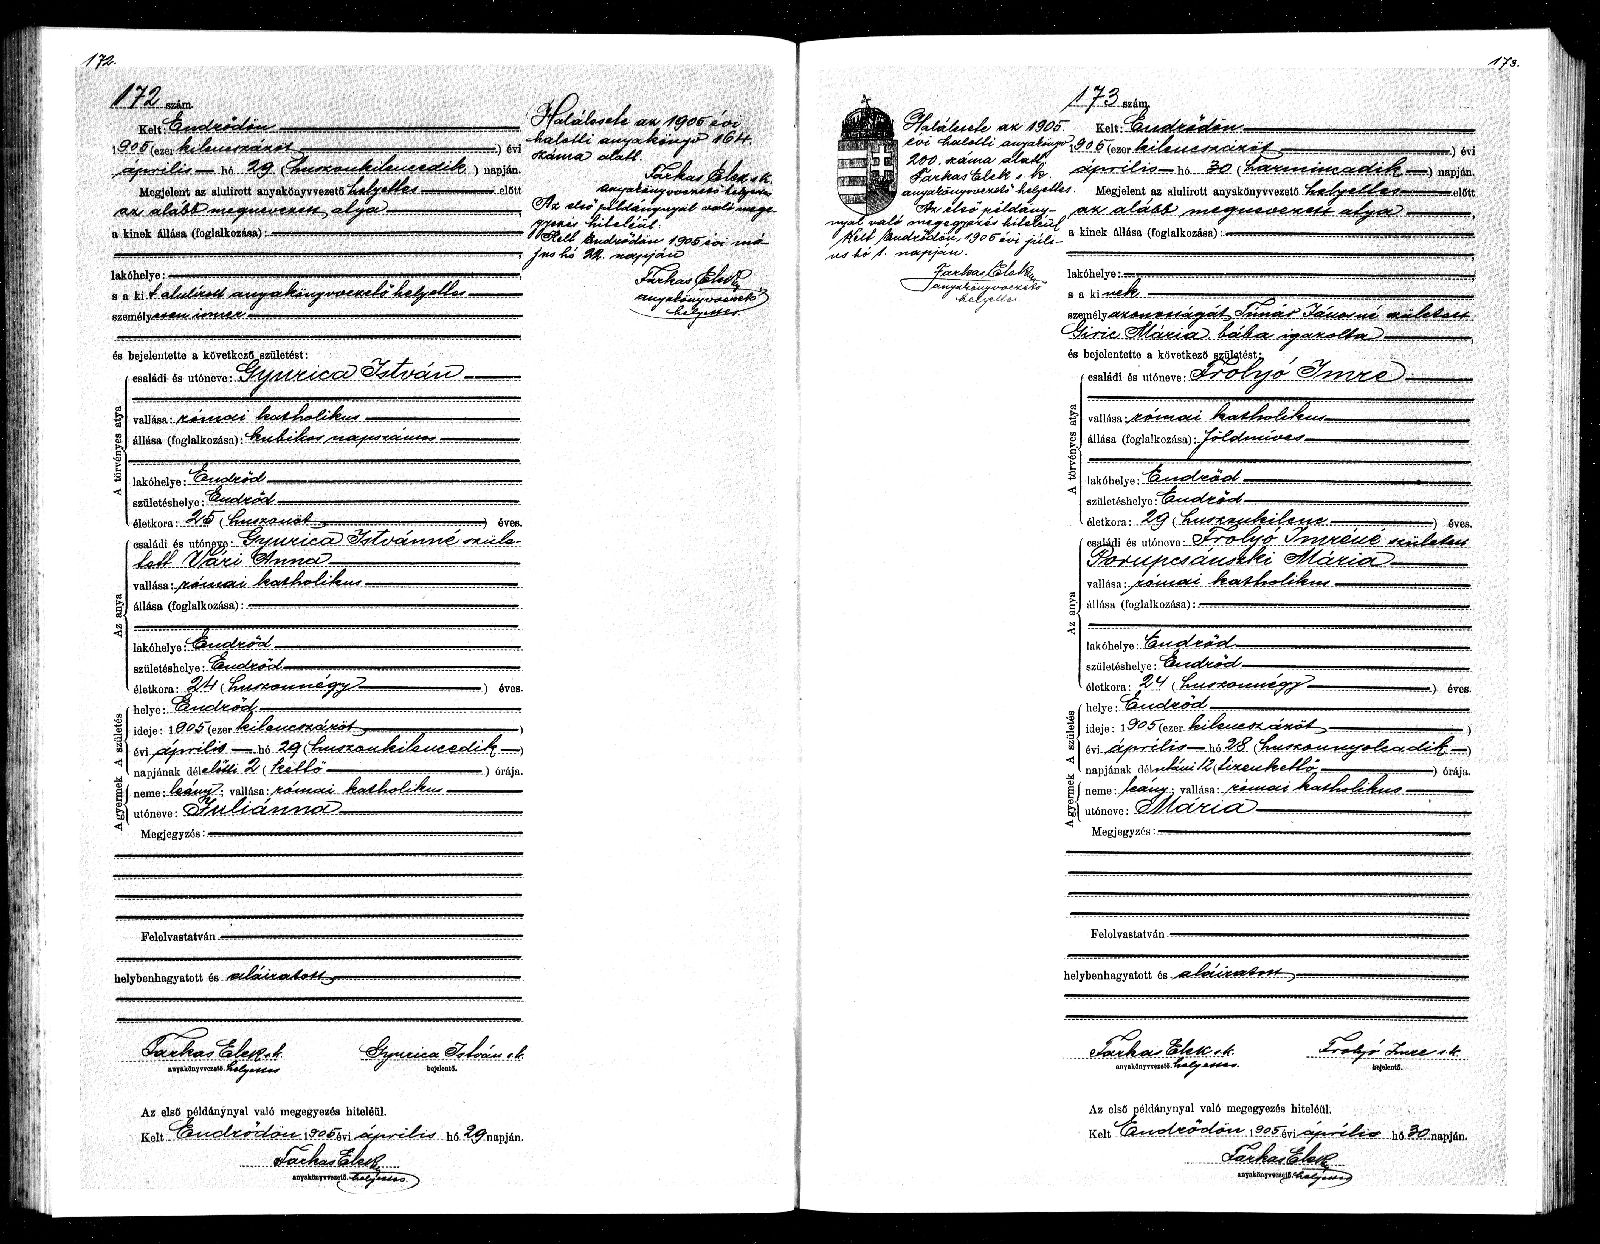 172.
172 szám.
Kelt: Endrődön
1905 (ezer kilencszázöt) évi
április hó 29 (huszonkilencedik) napján.
Megjelent az alulirott anyakönyvvezető helyettes előtt
az alább megnevezett atya,
a kinek állása (foglalkozása):
lakóhelye:
s a ki t alulírott anyakönyvvezető helyettes
személyesen ismer
és bejelentette a következő születést:
A törvényes atya
családi és utóneve: Gyurica István
vallása: római katholikus
állása (foglalkozása): kubikos napszámos
lakóhelye: Endrőd
születéshelye: Endrőd
életkora: 25 (huszonöt) éves.
Az anya
családi és utóneve: Gyurica Istvánné szüle-
tett Vári Anna
vallása: római katholikus
állása (foglalkozása):
lakóhelye: Endrőd
születéshelye: Endrőd
életkora: 24 (huszonnégy) éves.
A születés
helye: Endrőd
ideje: 1905 (ezer kilencszázöt)
évi április hó 29 (huszonkilencedik)
napjának délelőtti 2 (kettő) órája.
A gyermek
neme: leány; vallása: római katholikus
utóneve: Juliánna
Megjegyzés:
Felolvastatván
helybenhagyatott és aláiratott
Farkas Elek s.k. Gyurica István s.k.
anyakönyvvezető helyettes bejelentő.
Az első példánynyal való megegyezés hiteléül.
Kelt Endrődön 1905 évi április hó 29 napján.
Farkas Elek
anyakönyvvezető helyettes
Halálesete az 1905 évi
halotti anyakönyv 164.
száma alatt.
Farkas Elek s.k.
anyakönyvvezető helyettes
Az első példánynyal való mege-
gyezés hiteléül.
Kelt Endrődön 1905 évi má-
jus hó 22. napján
Farkas Elek
anyakönyvvezető
helyettes
173.
Halálesete az 1905.
évi halotti anyakönyv
200. száma alatt.
Farkas Elek s. k.
anyakönyvvezető helyettes.
Az első példány-
nyal való megegyezés hiteléül
Kelt Endrődön, 1905 évi júli-
us hó 1. napján.
Farkas Elek
anyakönyvvezető
helyettes
173 szám.
Kelt: Endrődön
1905 (ezer kilencszázöt) évi
április hó 30 (harmincadik) napján.
Megjelent az alulirott anyakönyvvezető helyettes előtt
az alább megnevezett atya,
a kinek állása (foglalkozása):
lakóhelye:
s a ki nek
személyazonosságát Tímár Jánosné született
Giric Mária bába igazolta
és bejelentette a következő születést:
A törvényes atya
családi és utóneve: Frolyó Imre
vallása: római katholikus
állása (foglalkozása): földmíves
lakóhelye: Endrőd
születéshelye: Endrőd
életkora: 29 (huszonkilenc) éves.
Az anya
családi és utóneve: Frolyó Imréné született
Porupcsánszki Mária
vallása: római katholikus
állása (foglalkozása):
lakóhelye: Endrőd
születéshelye: Endrőd
életkora: 24 (huszonnégy) éves.
A születés
helye: Endrőd
ideje: 1905 (ezer kilencszázöt)
évi április hó 28 (huszonnyolcadik)
napjának délutáni 12 (tizenkettő) órája.
A gyermek
neme: leány; vallása: római katholikus
utóneve: Mária
Megjegyzés:
Felolvastatván
helybenhagyatott és aláiratott
Farkas Elek s.k. Frolyó Imre s.k.
anyakönyvvezető helyettes bejelentő.
Az első példánynyal való megegyezés hiteléül.
Kelt Endrődön 1905 évi április hó 30 napján.
Farkas Elek
anyakönyvvezető helyettes